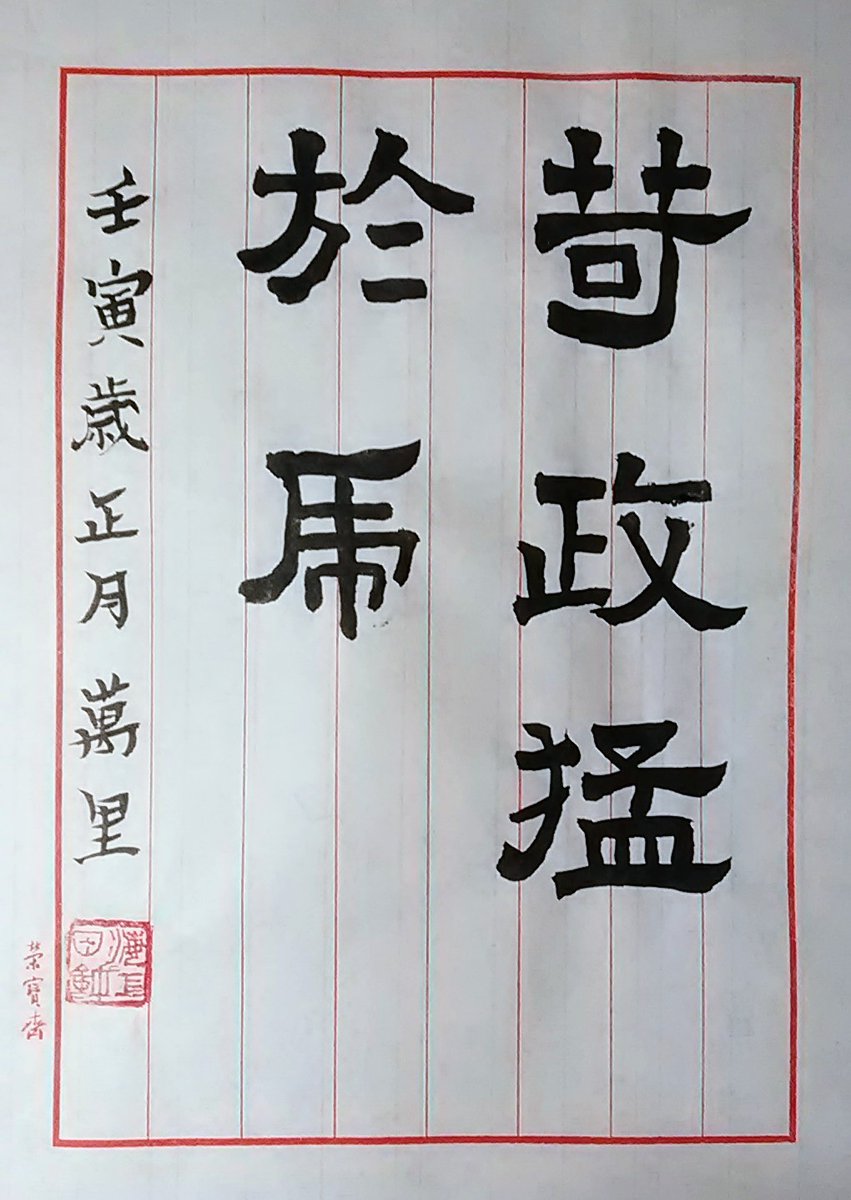 苛政猛
於虎
壬寅歲正月萬里
榮寶齋